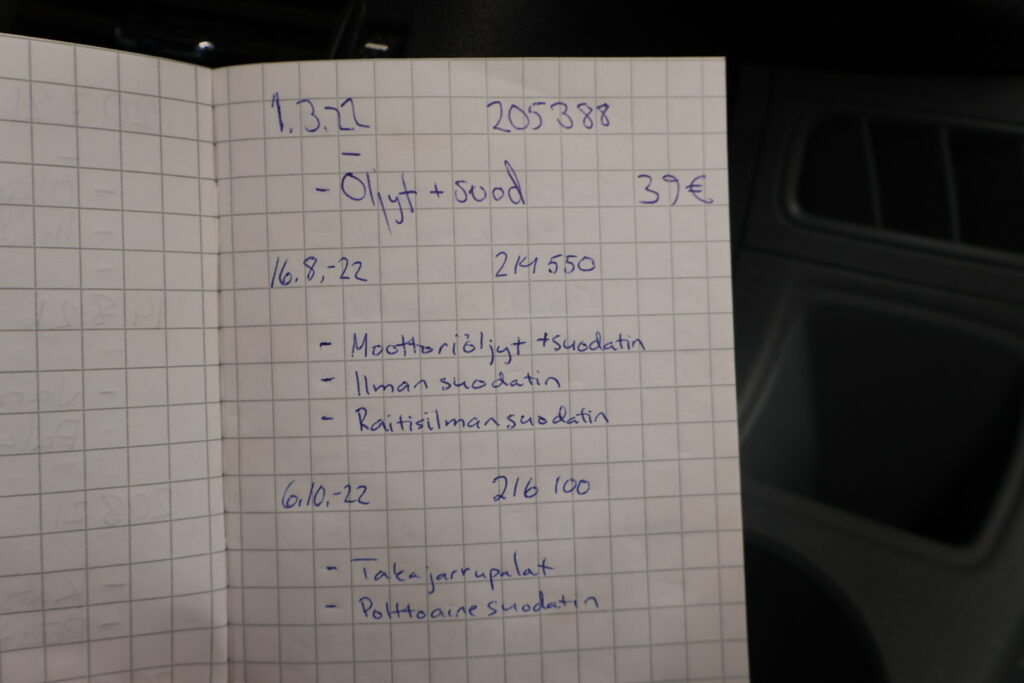 1.3.22 205388
- Öljyt + suod 39€
16.8,-22 214 550
- Moottoriöljyt +suodatin
- Ilman suodatin
- Raitisilman suodatin
6.10.-22 216 100
- Takajarrupalat
- Polttoaine suodatin